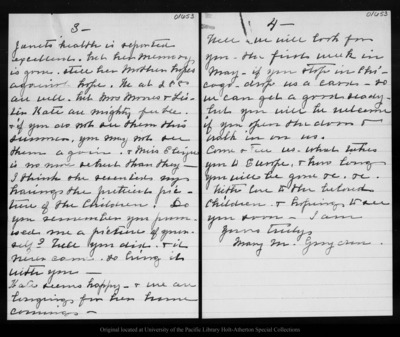 01453
3-
Janets health is reported
excellent. But her memory
is gone. still her Mother hopes
against hope. We at 255
are well. but Mrs Moores & Sis-
ter Kate are mighty feeble.
& if you do not see them this
summer you may not see
them again. & Miss
is no more robust than they -
I think she
having the prettiest pic-
ture of the Children! Do
you remember you prom-
ised me a picture of your-
self? Well you did. & it
never came. so bring it
with you -
Kate seems happy - & we are
longing for her home
coming -
01453
4-
Well we will look for
you the first week in
May - if you stop in Chi-
cago drop us a card - so
we can get a good ready -
but you will be welcome
if you open the door &
walk in on us.
Come & tell us what takes
you to Europe. & how long
you will be gone &c. &c.
With love to the beloved
Children. & hoping to see
you soon - I am
yours truly
Mary M.
Original located at University of the Pacific Library Holt-Atherton Special Collections